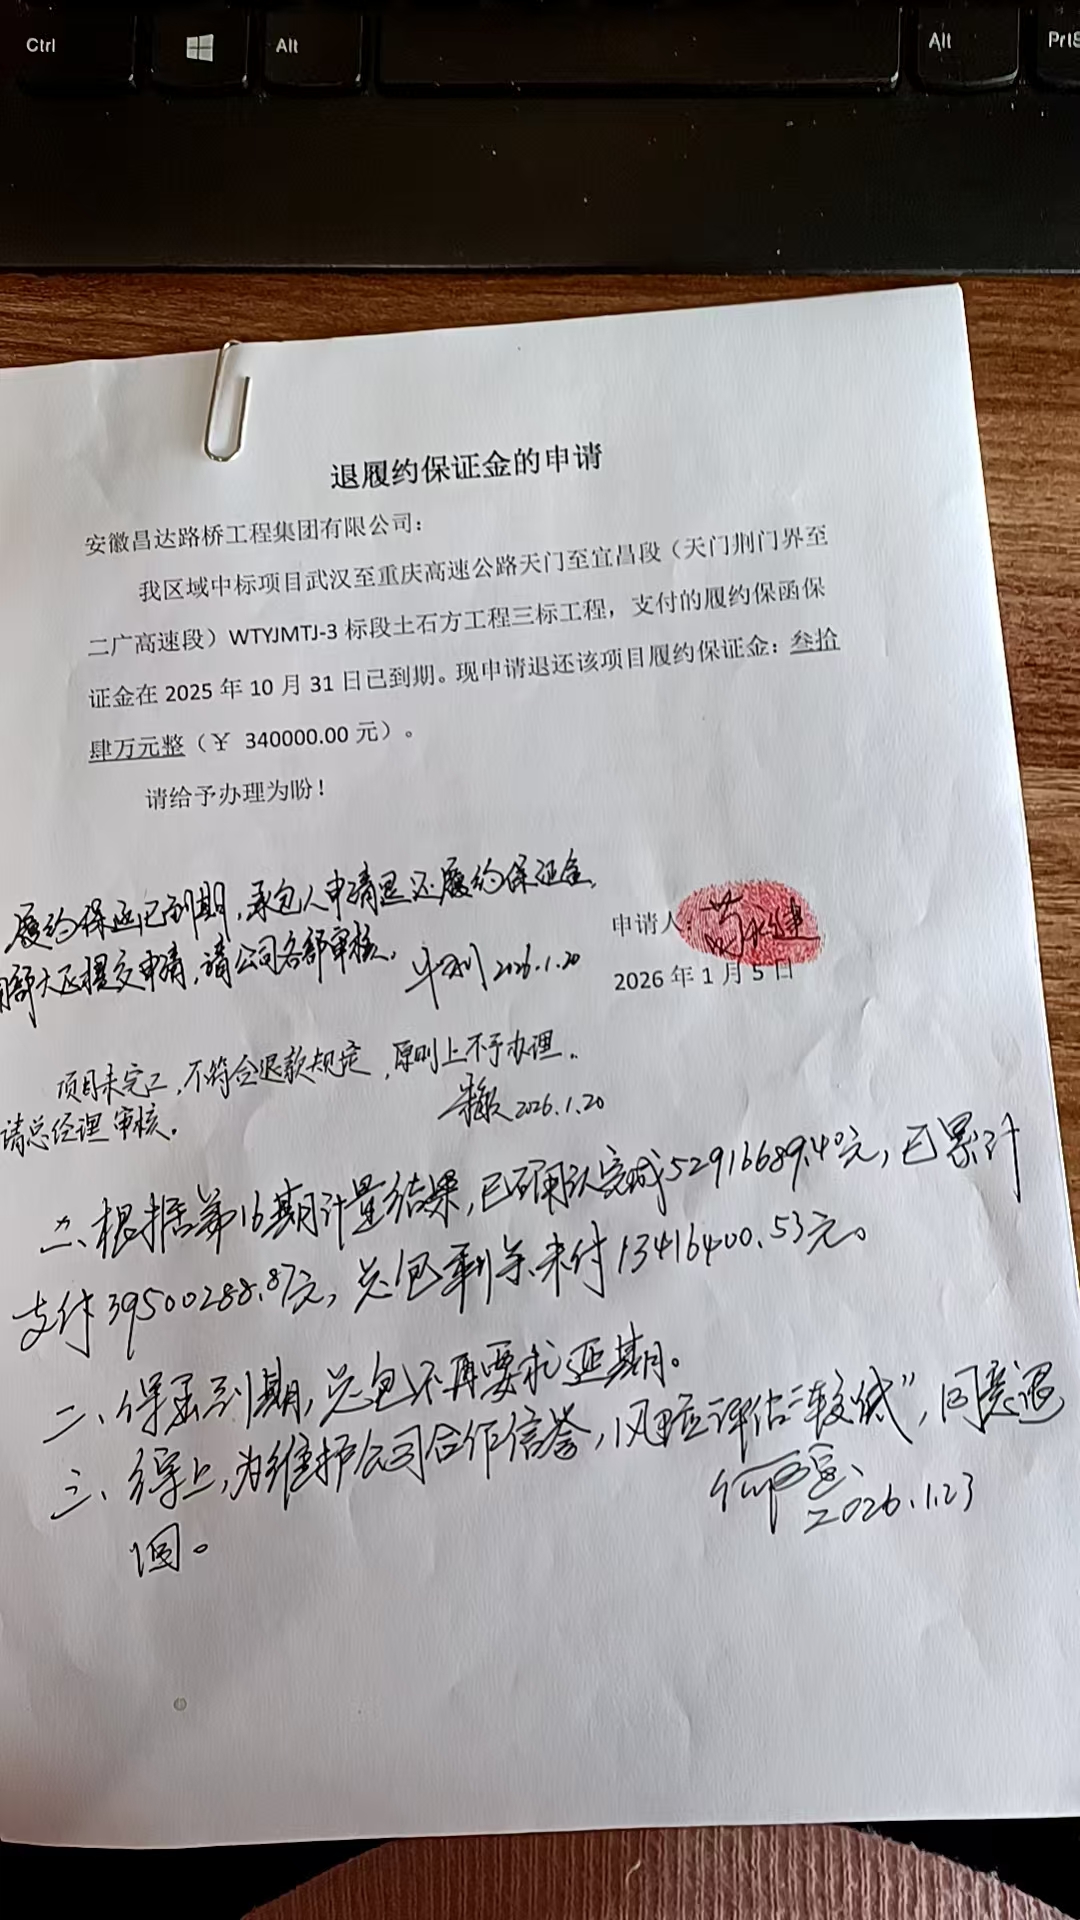 Ctrl
Alt
Alt
PrtS
退履约保证金的申请
安徽昌达路桥工程集团有限公司：
我区域中标项目武汉至重庆高速公路天门至宜昌段（天门荆门界至
二广高速段）WTYJMTJ-3 标段土石方工程三标工程，支付的履约保函保
证金在 2025 年 10 月 31 日已到期。现申请退还该项目履约保证金：叁拾
肆万元整（￥ 340000.00 元）。
请给予办理为盼！
履约保函已到期，承包人申请退还履约保证金，
大区提交申请，请公司各部审核。
2026.1.20
申请人：
2026 年 1 月 5 日
项目未完工，不符合退款规定，原则上不予办理。
请总经理审核。
2026.1.20
一、根据第16期计量结果，已确认完成52916689.40元，已累计
支付39500288.87元，总包剩余未付13416400.53元。
二、保函到期，总包不再要求延期。
三、综上，为维护公司合作信誉，风险评估“较低”，同意退
回。
2026.1.23